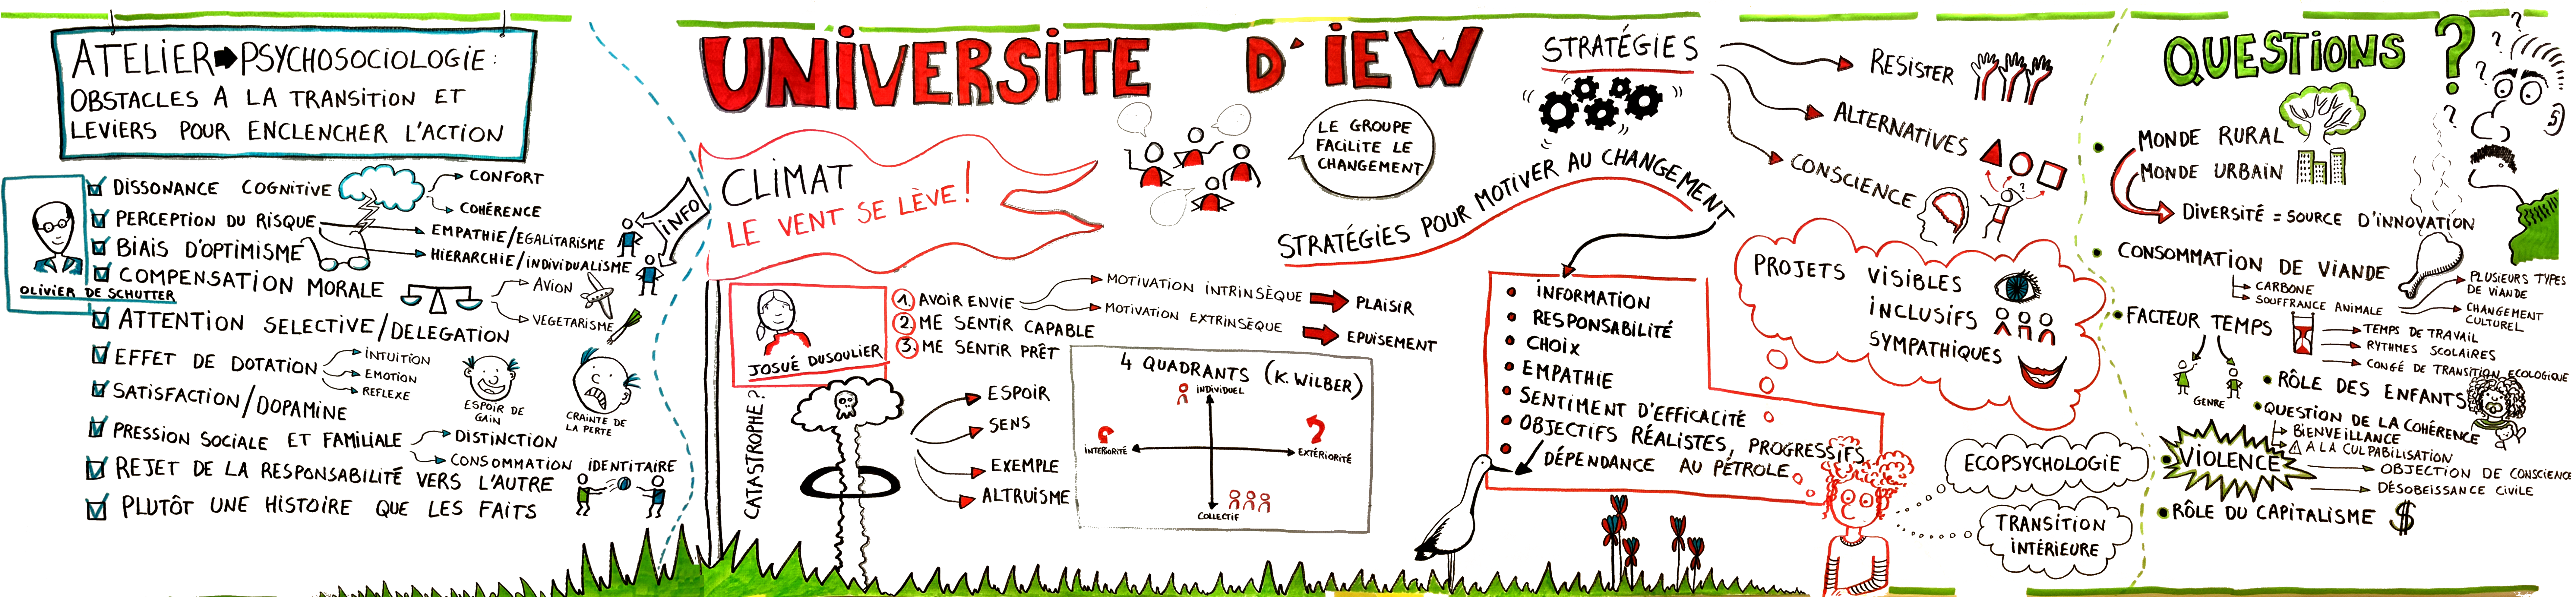 ATELIER PSYCHOSOCIOLOGIE :
OBSTACLES A LA TRANSITION ET
LEVIERS POUR ENCLENCHER L'ACTION
OLIVIER DE SCHUTTER
DISSONANCE COGNITIVE
CONFORT
COHÉRENCE
PERCEPTION DU RISQUE
EMPATHIE/EGALITARISME
HIERARCHIE/INDIVIDUALISME
INFO
BIAIS D'OPTIMISME
COMPENSATION MORALE
AVION
VEGETARISME
ATTENTION SELECTIVE/DELEGATION
EFFET DE DOTATION
INTUITION
EMOTION
REFLEXE
ESPOIR DE
GAIN
CRAINTE DE
LA PERTE
SATISFACTION/DOPAMINE
PRESSION SOCIALE ET FAMILIALE
DISTINCTION
CONSOMMATION IDENTITAIRE
REJET DE LA RESPONSABILITÉ VERS L'AUTRE
PLUTÔT UNE HISTOIRE QUE LES FAITS
UNIVERSITE D'IEW
CLIMAT
LE VENT SE LÈVE !
LE GROUPE
FACILITE LE
CHANGEMENT
JOSUÉ DUSOULIER
1. AVOIR ENVIE
2. ME SENTIR CAPABLE
3. ME SENTIR PRÊT
MOTIVATION INTRINSÈQUE
PLAISIR
MOTIVATION EXTRINSÈQUE
EPUISEMENT
CATASTROPHE ?
ESPOIR
SENS
EXEMPLE
ALTRUISME
4 QUADRANTS (K. WILBER)
INDIVIDUEL
INTÉRIORITÉ
EXTÉRIORITÉ
COLLECTIF
STRATÉGIES
RESISTER
ALTERNATIVES
CONSCIENCE
?
STRATÉGIES POUR MOTIVER AU CHANGEMENT
INFORMATION
RESPONSABILITÉ
CHOIX
EMPATHIE
SENTIMENT D'EFFICACITÉ
OBJECTIFS RÉALISTES, PROGRESSIFS
DÉPENDANCE AU PÉTROLE
PROJETS VISIBLES
INCLUSIFS
SYMPATHIQUES
ECOPSYCHOLOGIE
TRANSITION
INTÉRIEURE
QUESTIONS ?
? ? ? ?
MONDE RURAL
MONDE URBAIN
DIVERSITÉ = SOURCE D'INNOVATION
CONSOMMATION DE VIANDE
CARBONE
SOUFFRANCE ANIMALE
PLUSIEURS TYPES
DE VIANDE
CHANGEMENT
CULTUREL
FACTEUR TEMPS
TEMPS DE TRAVAIL
RYTHMES SCOLAIRES
CONGÉ DE TRANSITION ECOLOGIQUE
GENRE
RÔLE DES ENFANTS
QUESTION DE LA COHÉRENCE
BIENVEILLANCE
⚠ A LA CULPABILISATION
VIOLENCE
OBJECTION DE CONSCIENCE
DÉSOBEISSANCE CIVILE
RÔLE DU CAPITALISME $